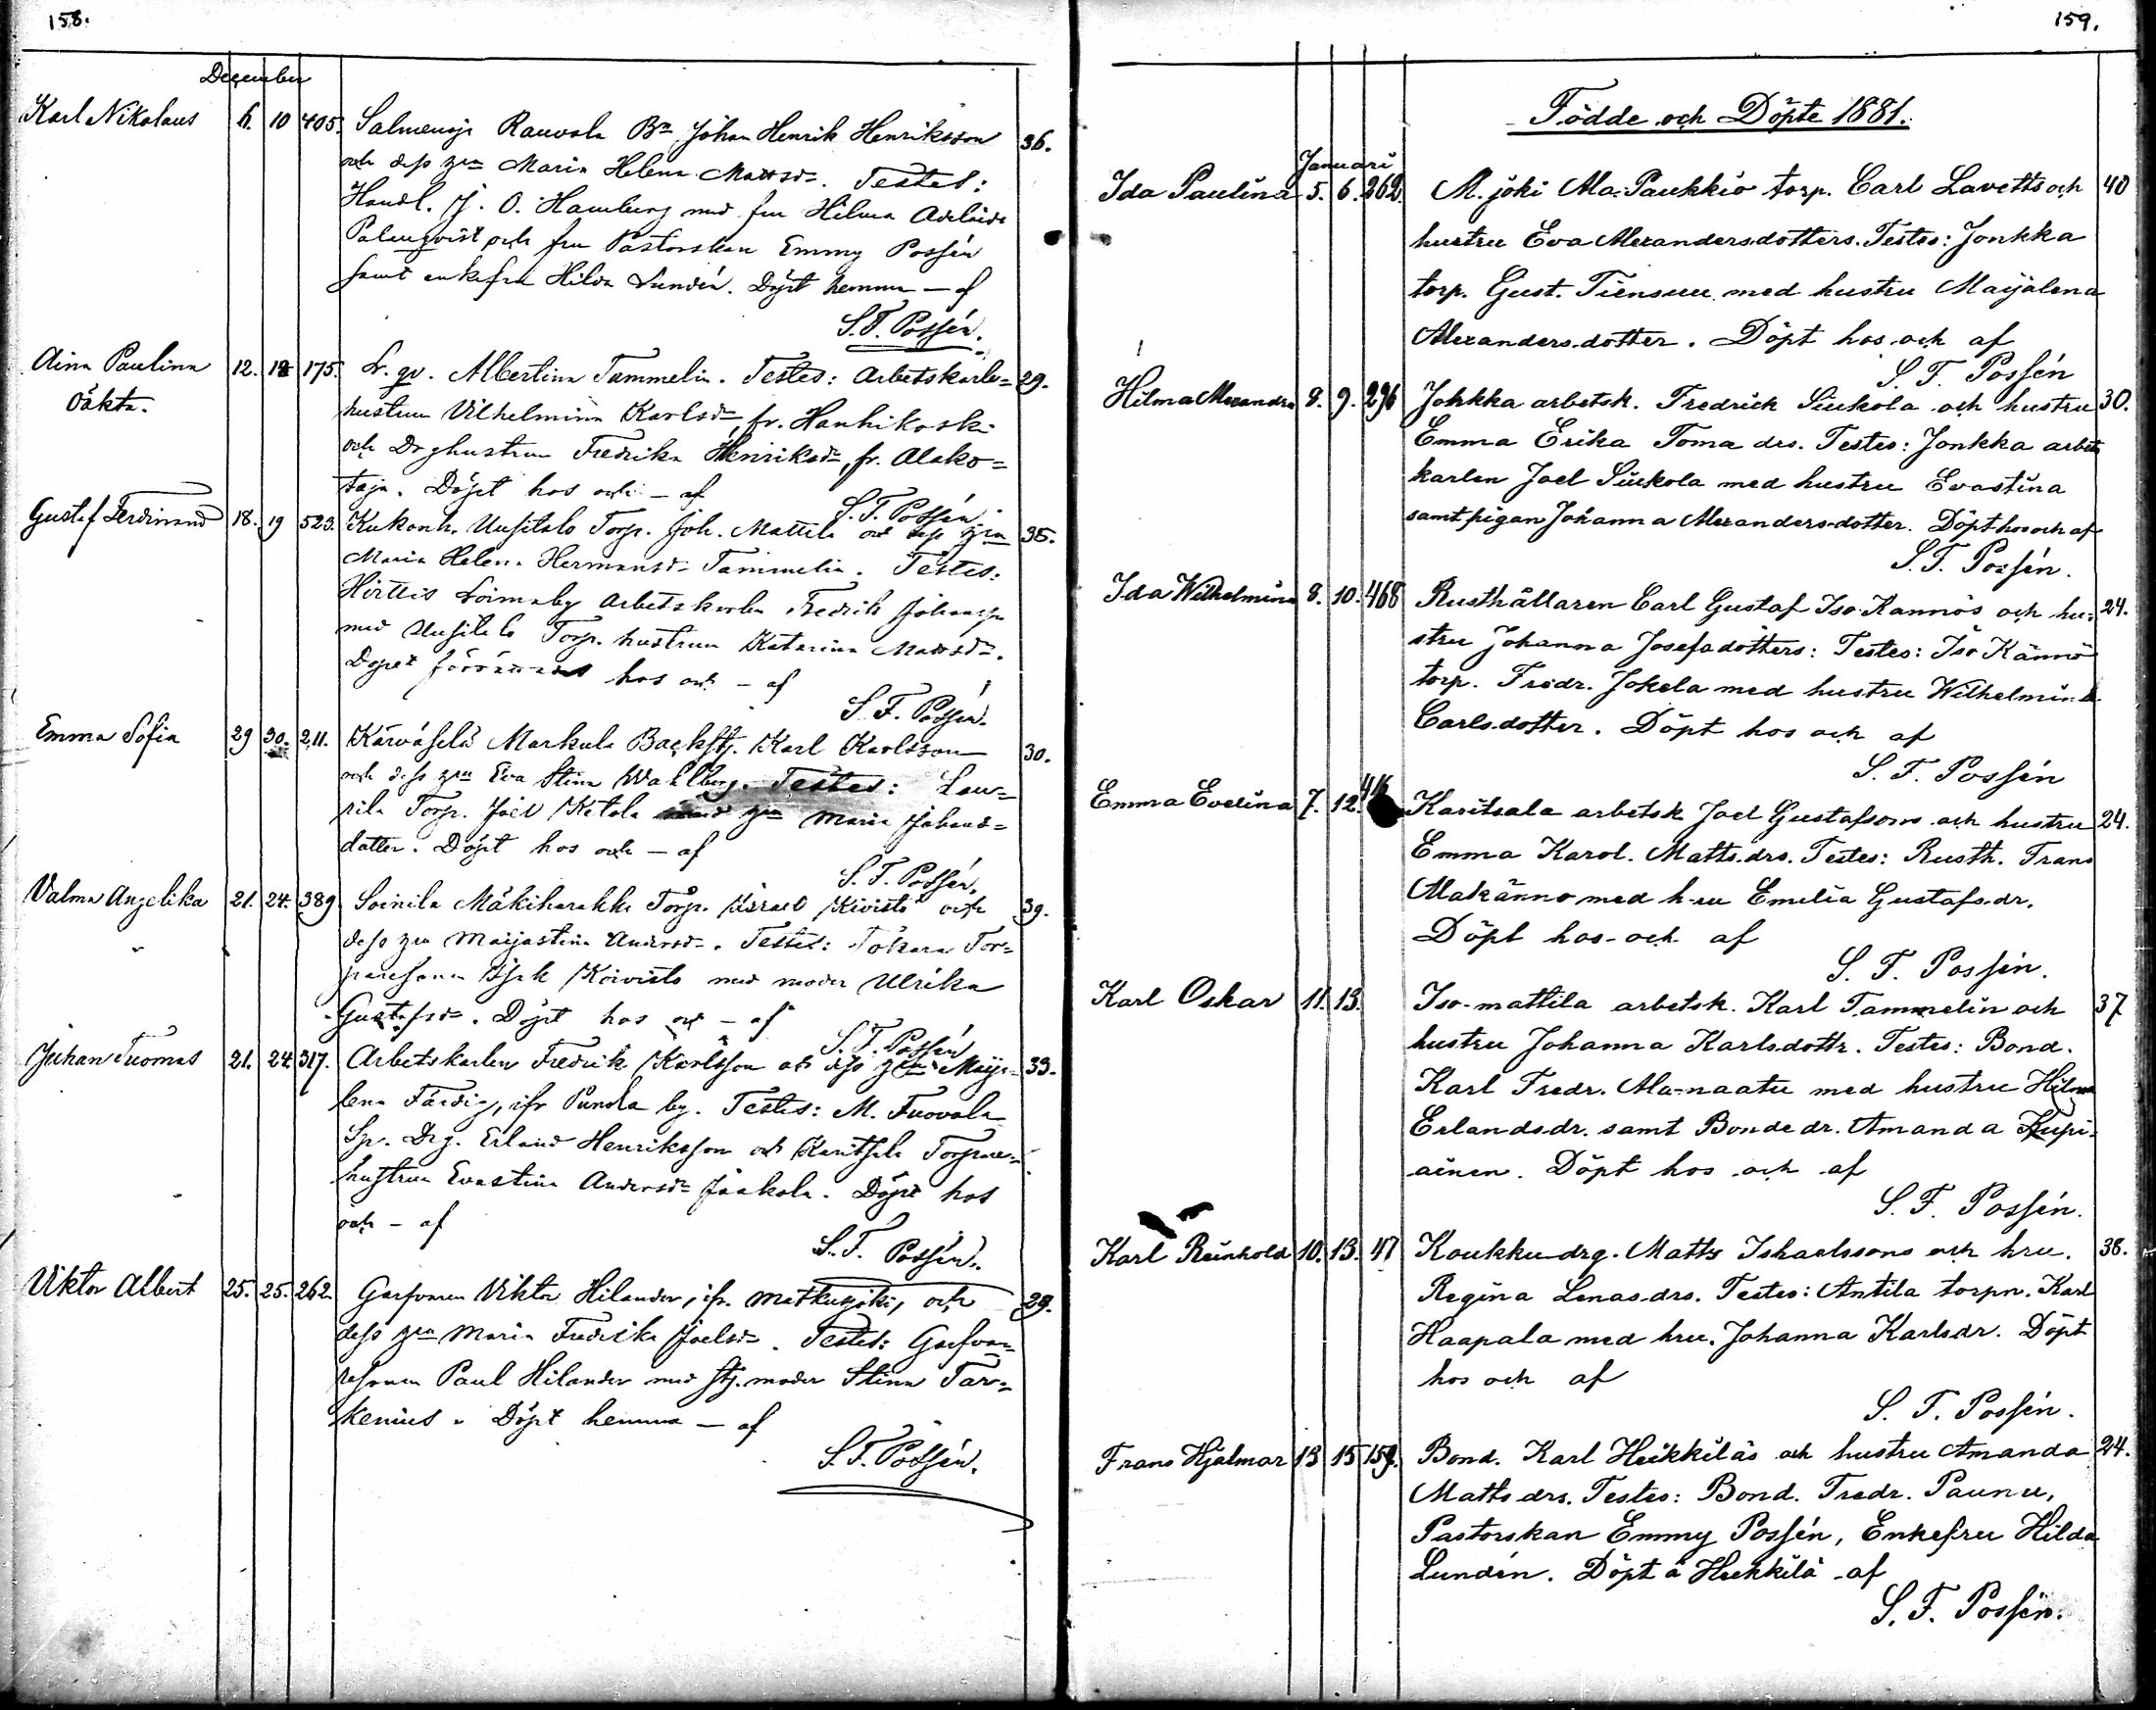 158.
December
Karl Nikolaus 6. 10 405. Salmenoja Rauvola Bn Johan Henrik Henriksson 36.
och dess Maria Helena Mattsdr. Testes:
Handl. J. O. Hamburg med fru Hilma Adelaide
Palmqvist och fru Pastorskan Emmy Possén
samt enkefru Hilda Lundén. Döpt hemma — af
S. F. Possén.
Aina Paulina 12. 18 175. Albertina Tammelin. Testes: Arbetskarls= 29.
Oäkta. hustrun Vilhelmina Karlsdr, fr. Hanhikoski
och Drghustrun Fredrika Henriksdr, fr. Alako=
taja. Döpt hos och — af
S. F. Possén.
Gustaf Ferdinand 18. 19 523. Kukonh. Uusitalo Torp. Joh. Mattila och dess 35.
Maria Helena Hermansdr Tammelin. Testes:
Loimaby Arbetskarlen Fredrik Johansson
med Uusitalo Torp. hustrun Katarina Mattsdr.
Döpt hos och — af
S. F. Possén.
Emma Sofia 29 30. 211. Karvasela Markula Backstj. Karl Karlsson 30.
och dess Eva Stina Wahlberg. Testes: Lau=
rila Torp. Joel Ketola med Maria Johans=
dotter. Döpt hos och — af
S. F. Possén.
Valma Angelika 21. 24. 389 Soinila Mäkiharakka Torp. Israel Kivistö och 39.
dess Maijastina Andersdr. Testes: Tor=
paresonen Isak Koivisto med moder Ulrika
Gustafsdr. Döpt hos och — af
S. F. Possén
Juhan Tuomas 21. 24. 317. Arbetskarlen Fredrik Karlsson och dess Maija= 33.
lena Färdig, ifr. Punola by. Testes: M. Tuovala
Drg. Erland Henriksson och Karitsala Torpare=
hustrun Evastina Andersdr Jaakola. Döpt hos
och — af
S. F. Possén.
Viktor Albert 25. 25. 262. Garfvaren Viktor Hilander, ifr. Matkusjoki, och 29.
dess Maria Fredrika Joelsdr. Testes: Garfva=
resonen Paul Hilander med stj. moder Stina Tar=
kenius. Döpt hemma — af
S. F. Possén.
159.
Födde och Döpte 1881.
Januari
Ida Paulina 5. 6. 262. M. joki Ala-Paukkio torp. Carl Lavetts och 40
hustru Eva Alexandersdotters. Testes: Jonkka
torp. Gust. Tiensuu med hustru Maijalena
Alexandersdotter. Döpt hos och af
S. F. Possén
Hilma Alexandra 8. 9. 296 Johkka arbetsk. Fredrick Siukola och hustru 30.
Emma Erika Toma drs. Testes: Jonkka arbets
karlen Joel Siukola med hustru Evastina
samt pigan Johanna Alexandersdotter. Döpt hos och af
S. F. Possén.
Ida Wilhelmina 8. 10. 468 Rusthållaren Carl Gustaf Iso-Kännös och hu= 24.
stru Johanna Josefsdotters: Testes: Iso Kännö
torp. Fredr. Jokela med hustru Wilhelmina
Carlsdotter. Döpt hos och af
S. F. Possén
Emma Evelina 7. 12. 416 Karitsala arbetsk Joel Gustafsons och hustru 24.
Emma Karol. Matts.drs. Testes: Rusth. Frans
Alakänno med h-u Emilia Gustafs.dr.
Döpt hos- och af
S. F. Possén.
Karl Oskar 11. 13. Iso-mattila arbetsk. Karl Tammelin och 37
hustru Johanna Karlsdottr. Testes: Bond.
Karl Fredr. Ala-naatu med hustru Hilma
Erlandsdr. samt Bonde dr. Amanda Kupi=
ainen. Döpt hos och af
S. F. Possén.
Karl Reinhold 10. 13. 47 Koukku drg. Matts Ishaelssons och hru. 38.
Regina Lenas.drs. Testes: Antila torpn. Karl
Haapala med hru. Johanna Karlsdr. Döpt
hos och af
S. F. Possén.
Frans Hjalmar 13 15 159. Bond. Karl Heikkiläs och hustru Amanda 24.
Matts drs. Testes: Bond. Fredr. Paunu,
Pastorskan Emmy Possén, Enkefru Hilda
Lundén. Döpt å Heikkilä af
S. F. Possén.